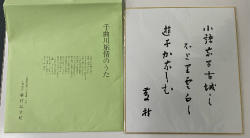 千曲川旅情のうた
小諸なる古城の
ほとり雲白く
遊子かなしむ
藤村